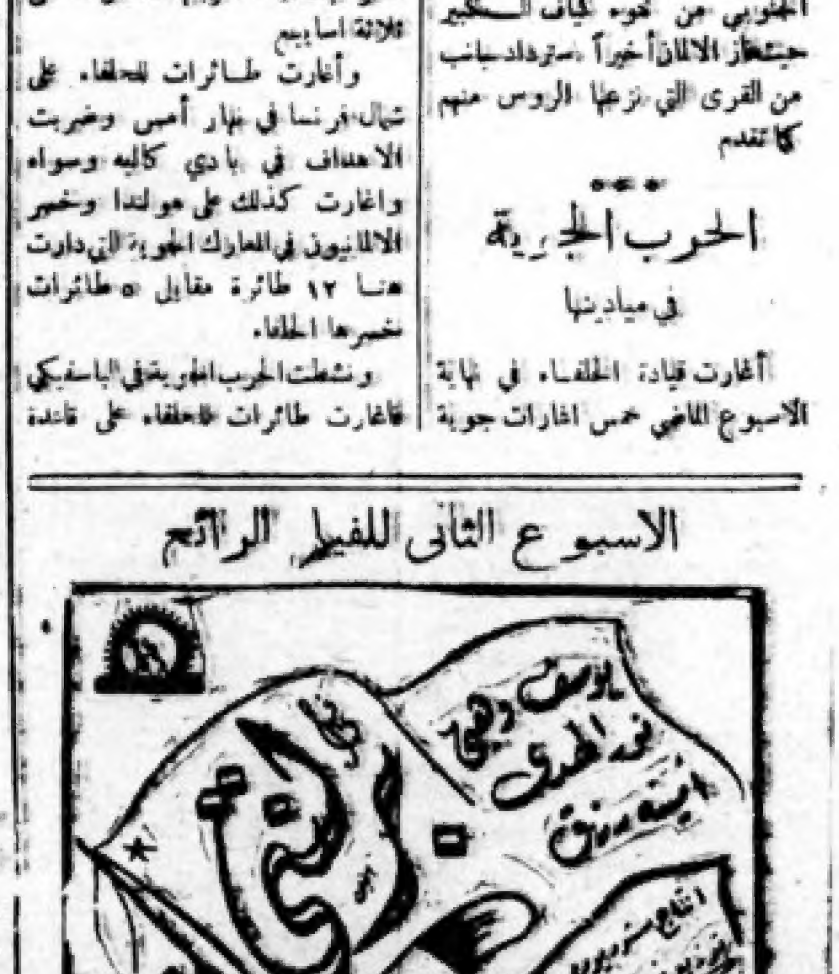 الجنوبي من نحوه كياف الكبير
الالمان أخيراً باسترداد جانب
من القرى التي نزعها الروس منهم
كما تقدم
الحرب الجوية
في ميادينها
أغارت قيادة الحلفاء في نهاية
الاسبوع الماضي خمس اغارات جوية
ثلاثة اسابيع
وأغارت طائرات للحلفاء على
شمال فرنسا في نهار أمس وضربت
الاهداف في بادي كاليه وسواه
واغارت كذلك على هولندا وخسر
الالمانيون في المعارك الجوية التي دارت
هنا ١٢ طائرة مقابل ٥ طائرات
خسرها الحلفاء
ونشطت الحرب الجوية في الباسفيكي
فاغارت طائرات للحلفاء على قاعدة
الاسبوع الثانى للفيلم الرائع
يوسف وهبي
نور الهدى
أمينه رزق
انتاج ستوديو